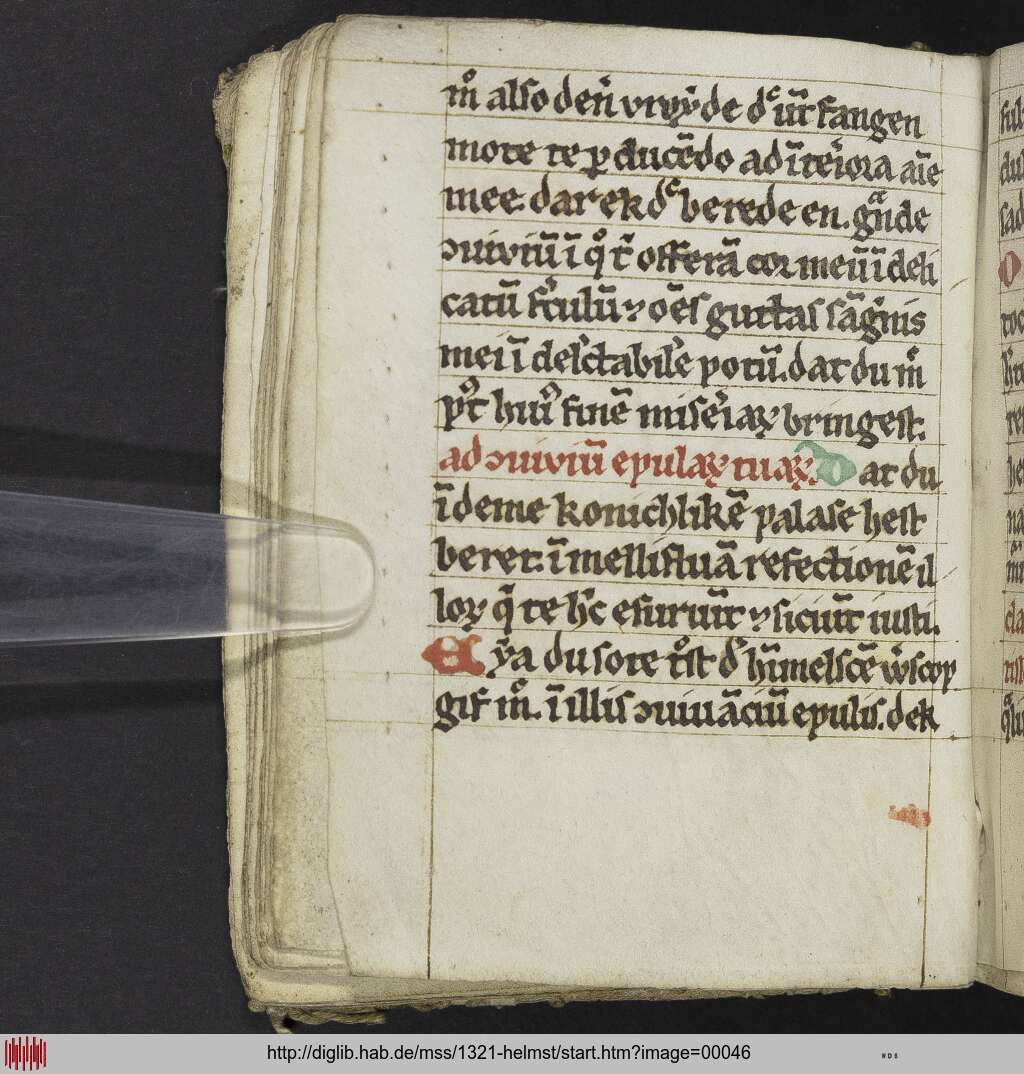 mͦ also den̄ vrvͦyde dͤ vn̄t fangen
mote te ꝑducēdo ad īteriora aīe
mee dar ek dͤ berede en. gͣnde
ↄuiviū ī qͦ tͥ offerā cor meū ī deli
catū fͨculū ⁊ oēs guttas sāgͥnis
mei ī delͨctabilͤ potū. dat du mͥ
pͦt huiꝰ finē miserͥaꝝ bringest.
ad ↄuiviū epulaꝝ tuaꝝ. Dat du
ī deme konichlikē palase hest
beret. ī mellifluā refectionē il
loꝝ qͥ te hͨ esuriūt ⁊ siciūt iusti.
Eẏa du sote tͦst dͤ hīmelscē wͥscop
gif mͦ. ī illis ↄuiuāciū epulis. dek
http://diglib.hab.de/mss/1321-helmst/start.htm?image=00046